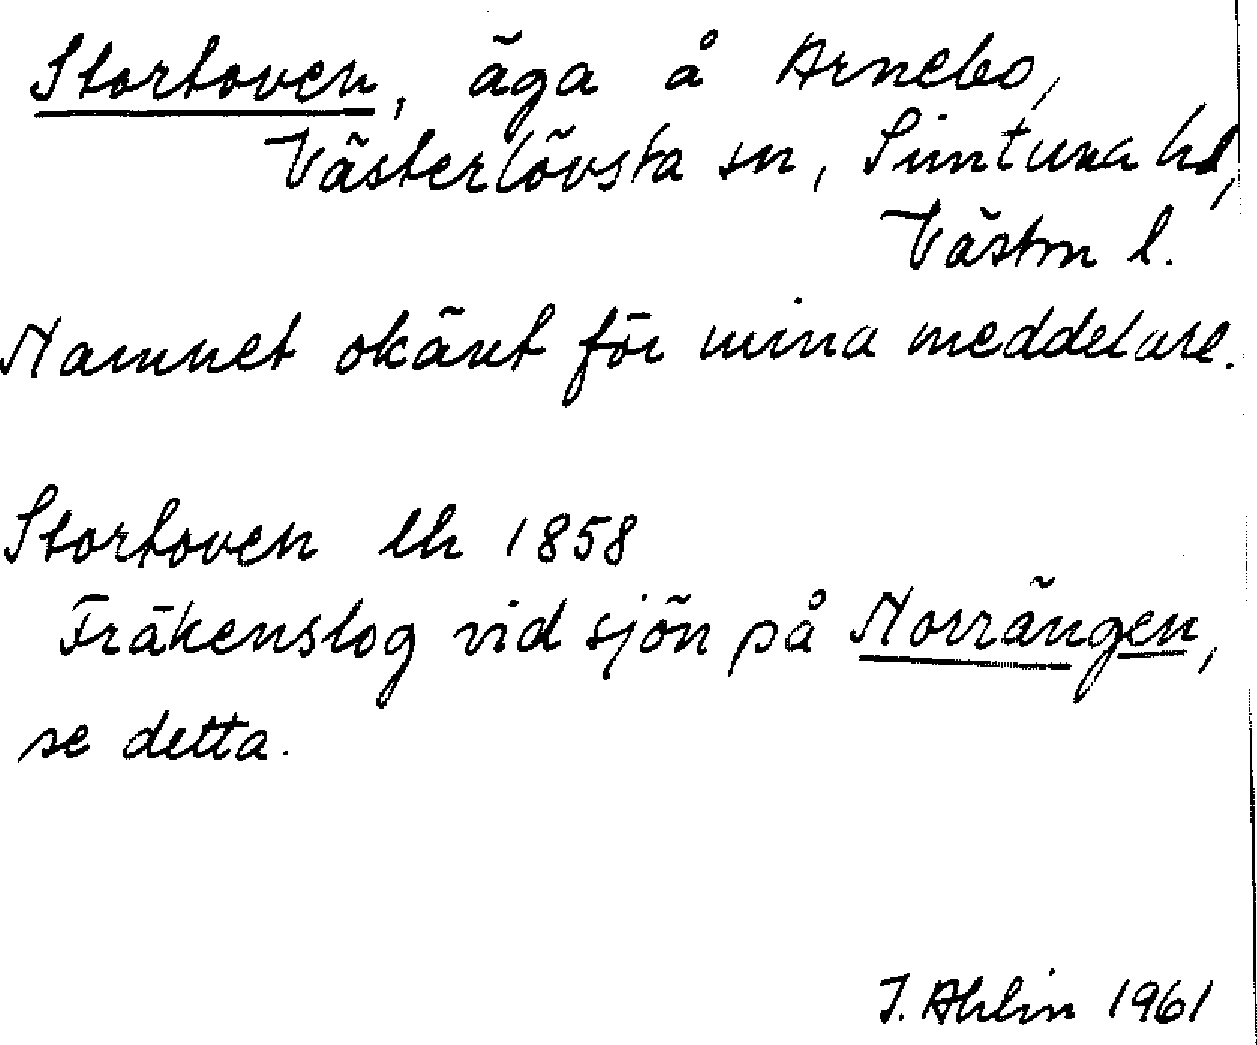 Stortoven, äga å Arnebo,
Västerlövsta sn, Simtuna hd,
Västm l.
Namnet okänt för mina meddelare.
Stortoven lh 1858
Fräkenslog vid sjön på Norrängen,
se detta.
J. Ahlin 1961